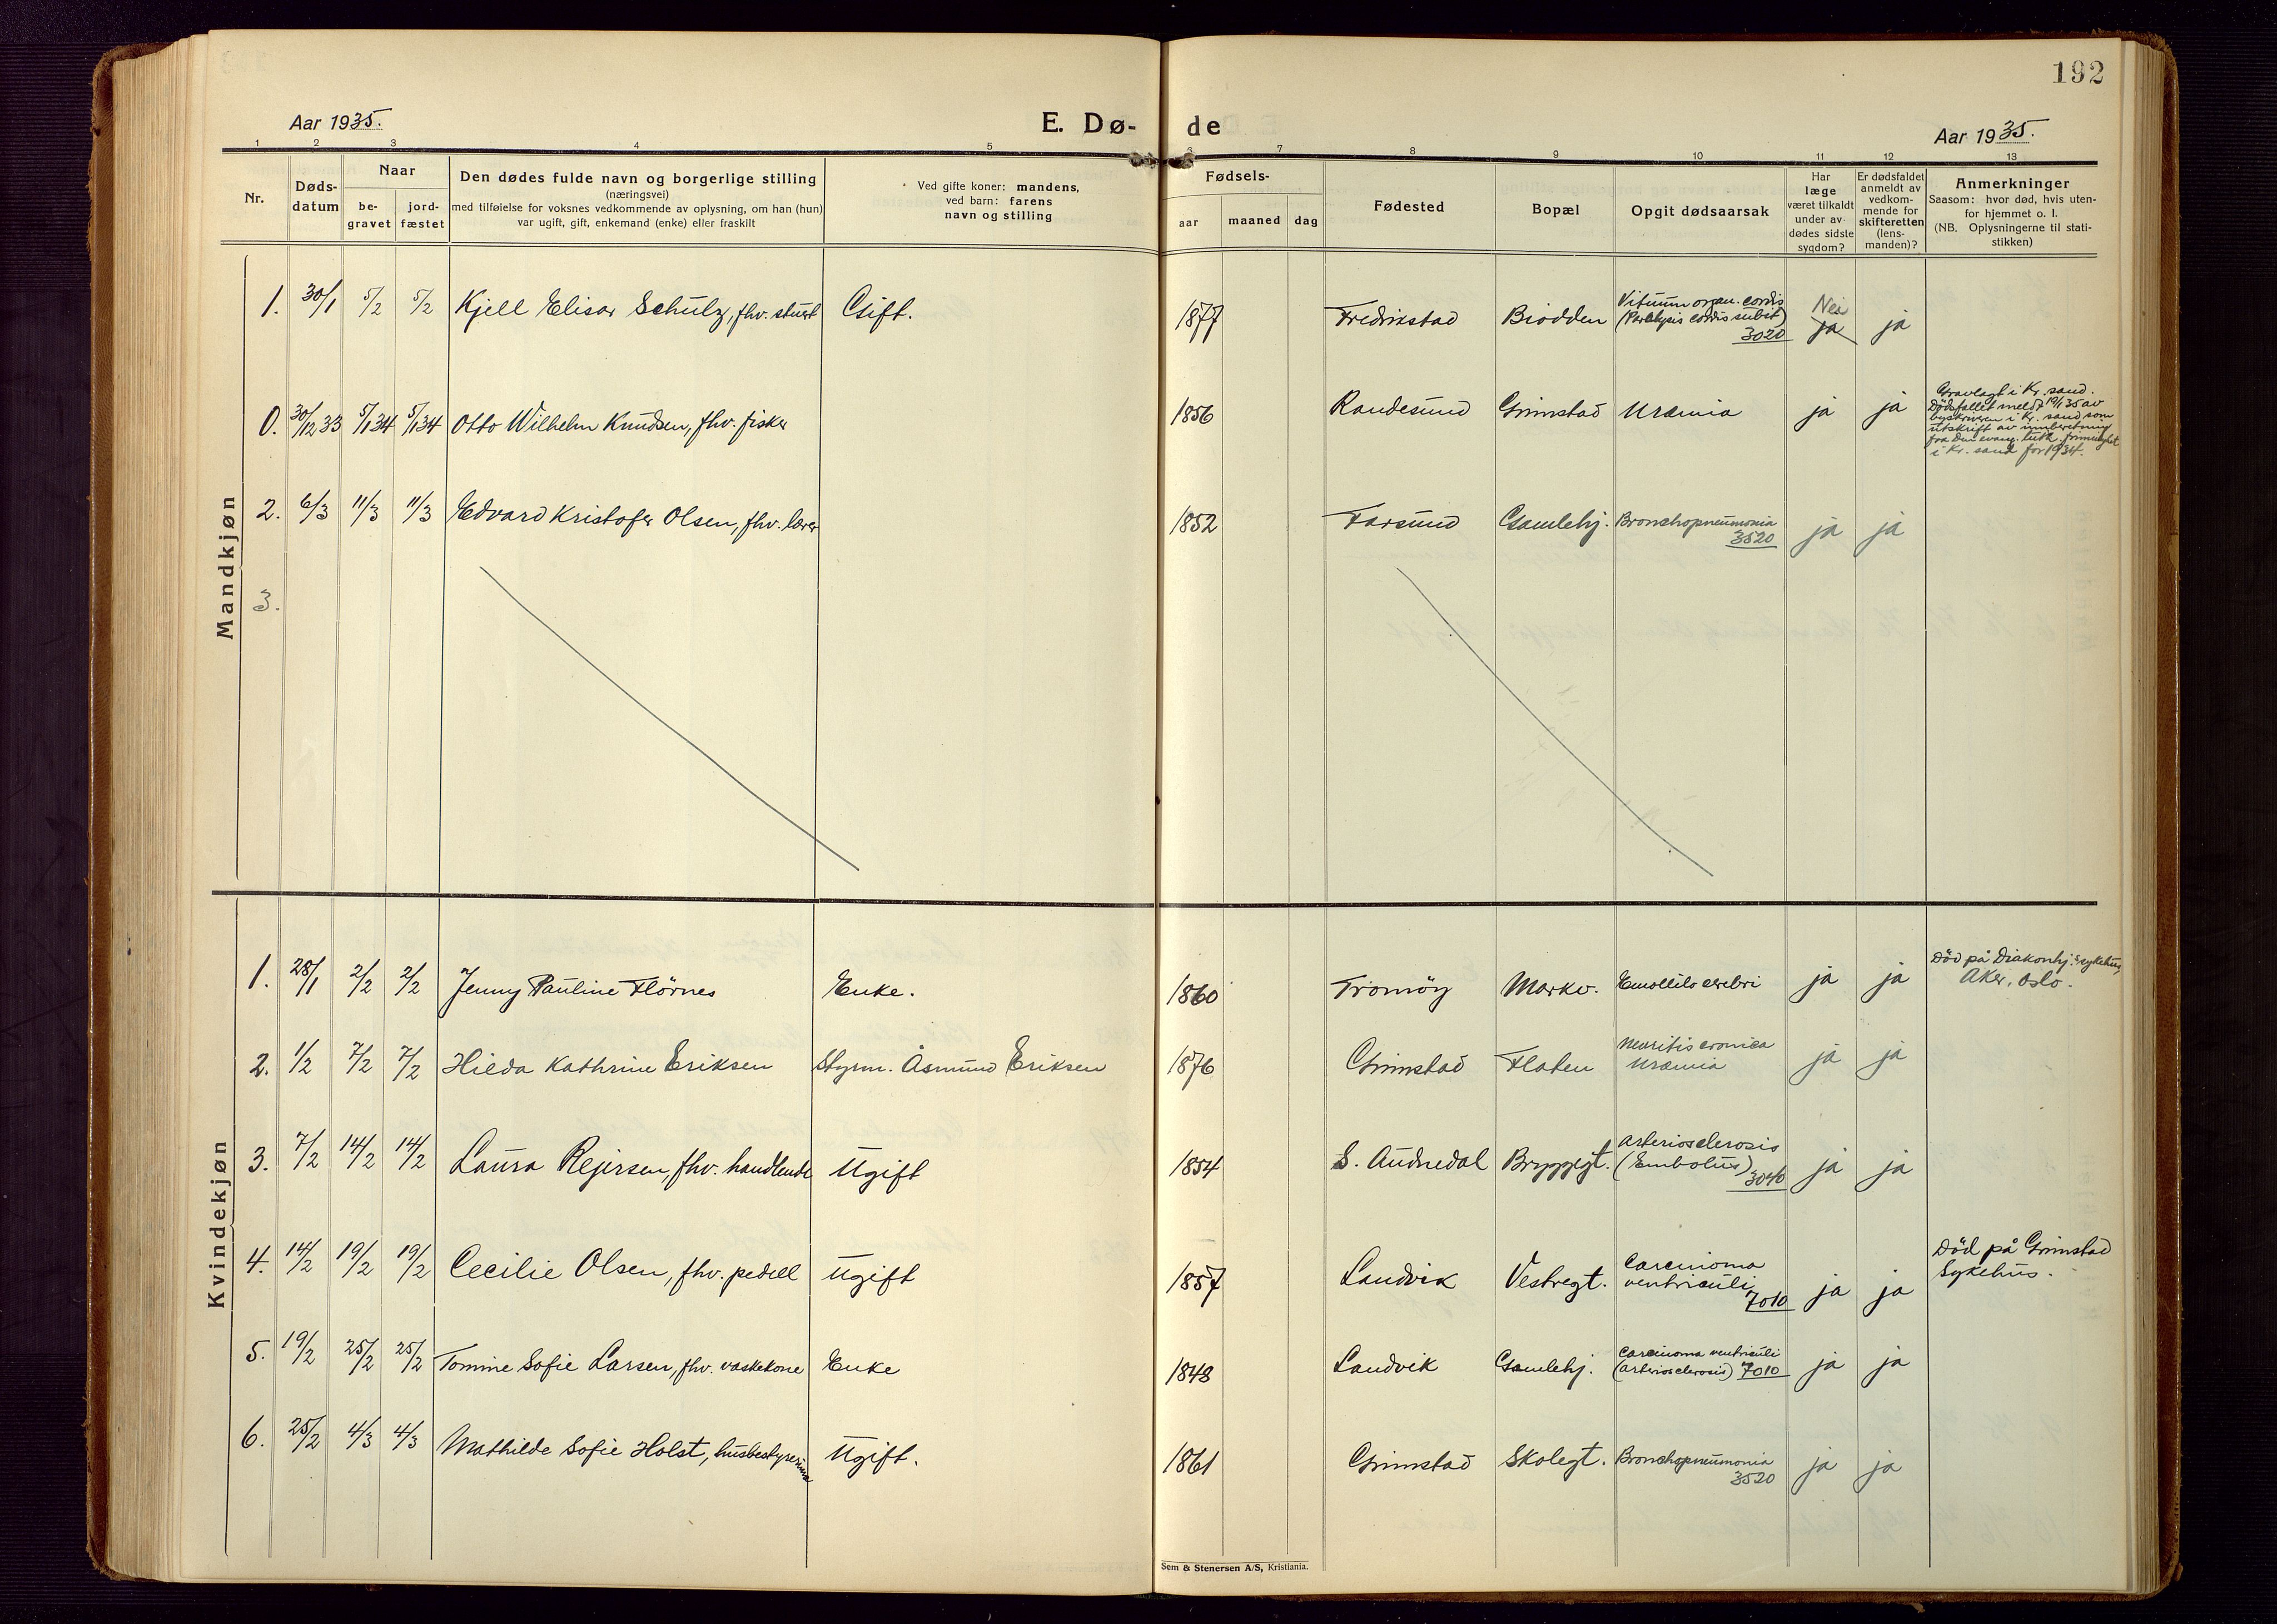 192
Aar 1935.
E. Dø-
de
Aar 1935.
1 2 3 4 5 6 7 8 9 10 11 12 13
Nr.
Døds-
datum
Naar
be-
gravet
jord-
fæstet
Den dødes fulde navn og borgerlige stilling
(næringsvei)
med tilføielse for voksnes vedkommende av oplysning, om han (hun)
var ugift, gift, enkemand (enke) eller fraskilt
Ved gifte koner: mandens,
ved barn: farens
navn og stilling
Fødsels-
aar maaned dag
Fødested
Bopæl
Opgit dødsaarsak
Har
læge
været tilkaldt
under av-
dødes sidste
sygdom?
Er dødsfaldet
anmeldt av
vedkom-
mende for
skifteretten
(lens-
manden)?
Anmerkninger
Saasom: hvor død, hvis uten-
for hjemmet o. l.
(NB. Oplysningerne til stati-
stikken)
Mandkjøn
1. 30/1 5/2 5/2 Kjell Elisar Schulz, fhv. stuert Gift. 1877 Fredrikstad Biodden Vitium organ. cordis
(Paralysis cordis subit)
3020
Nei
ja ja
0. 30/12 33 5/1 34 5/1 34 Otto Wilhelm Knudsen, fhv. fisker 1856 Randesund Grimstad Uræmia ja ja
Gravlagt i Kr.sand.
Dödsfallet meldt 19/1 35 av
byskriveren i Kr.sand som
utskrift av innberetning
fra den evang. luth. frimenighet
i Kr.sand for 1934.
2. 6/3 11/3 11/3 Edvard Kristofer Olsen, fhv. lærer 1852 Farsund Gamlehj. Bronchopneumonia
3520 ja ja
3.
Kvindekjøn
1. 28/1 2/2 2/2 Jenny Pauline Flörnes Enke. 1860 Tromöy Markv. Emollitio cerebri ja ja
Död på Diakonhj. sykehus,
Aker, Oslo.
2. 1/2 7/2 7/2 Hilda Kathrine Eriksen Styrm. Åsmund Eriksen 1876 Grimstad Flaten
cronica
Uræmia ja ja
3. 7/2 14/2 14/2 Laura Rejersen, fhv. handlende Ugift 1854 S. Audnedal Bryggegt. Arteriosclerosis
(Embolus)
3040 ja ja
4. 14/2 19/2 19/2 Cecilie Olsen, fhv. pedell Ugift 1857 Landvik Vestregt. Carcinoma
ventriculi
7010 ja ja
Död på Grimstad
Sykehus.
5. 19/2 25/2 25/2 Tomine Sofie Larsen, fhv. vaskekone Enke 1848 Landvik Gamlehj. Carcinoma ventriculi
(arteriosclerosis) 7010 ja ja
6. 25/2 4/3 4/3 Mathilde Sofie Holst, husbestyrerinne Ugift. 1861 Grimstad Skolegt. Bronchopneumonia
3520 ja ja
Sem & Stenersen A/S, Kristiania.